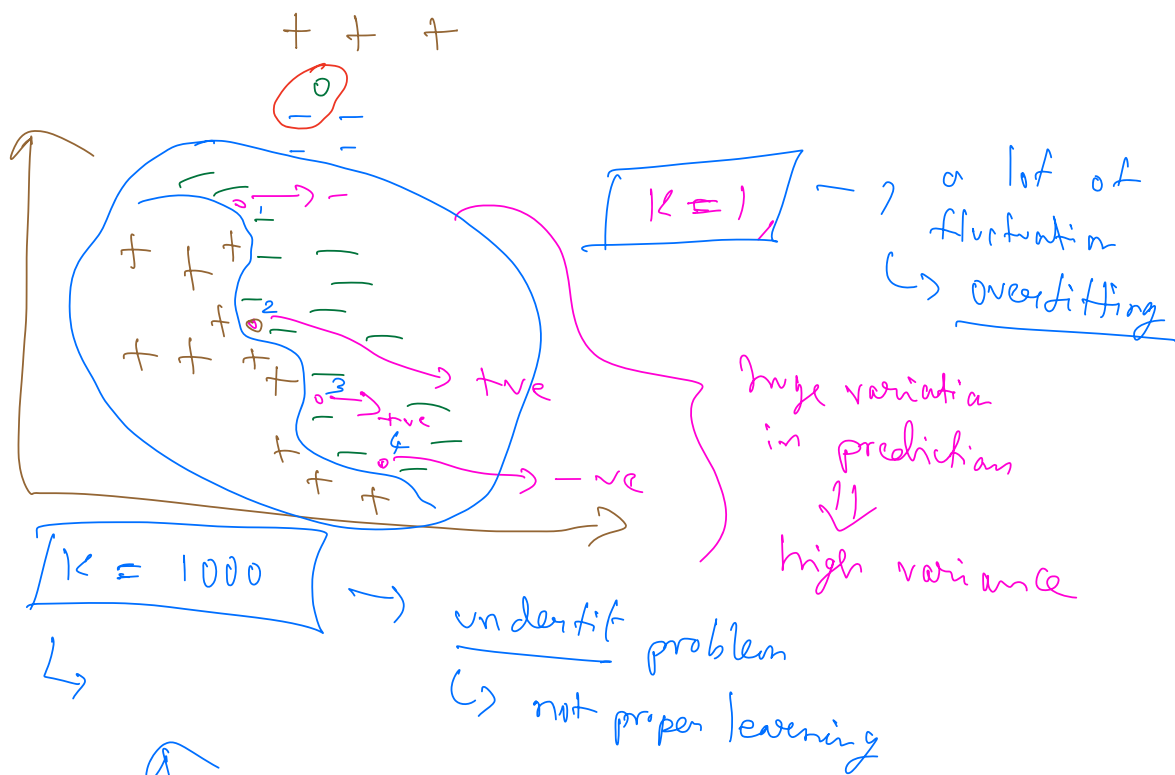 K = 1
→ a lot of
fluctuation
↳ overfitting
1
→ -
2
→ +ve
3
→ +ve
4
→ - ve
huge variation
in prediction
⇓
high variance
K = 1000
→ underfit problem
↳ not proper learning